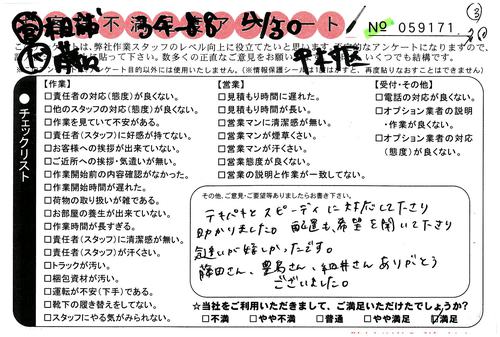 不満足度アンケート
№ 059171
③
このアンケートは、弊社作業スタッフのレベル向上に役立てたいと思います。否定的なアンケートになりますので、
に貼って下さい。数多くの正直なご意見をお願い
いつでも結構です。
アンケート目的以外には使用いたしません。（※情報保護シールは
再度貼りなおすことはできません）
●チェックリスト
【作業】
□責任者の対応（態度）が良くない。
□他のスタッフの対応（態度）が良くない。
□作業を見ていて不安がある。
□責任者（スタッフ）に好感が持てない。
□お客様への挨拶が出来ていない。
□ご近所への挨拶・気遣いが無い。
□作業開始前の内容確認がなかった。
□作業開始時間が遅れた。
□荷物の取り扱いが雑である。
□お部屋の養生が出来ていない。
□作業時間が長すぎる。
□責任者（スタッフ）に清潔感が無い。
□責任者（スタッフ）が汗くさい。
□トラックが汚い。
□梱包資材が汚い。
□運転が不安（下手）である。
□靴下の履き替えをしてない。
□スタッフにやる気がみられない。
【営業】
□見積もり時間に遅れた。
□見積もり時間が長い。
□営業マンに清潔感が無い。
□営業マンが煙草くさい。
□営業マンが汗くさい。
□営業態度が良くない。
□営業の説明と作業が一致してない。
【受付・その他】
□電話の対応が良くない。
□オプション業者の説明
・作業が良くない。
□オプション業者の対応
（態度）が良くない。
その他、ご意見・ご要望等ありましたらお書き下さい。
テキパキとスピーディに対応して下さり
助かりました。配置も希望を聞いて下さり
気遣いが嬉しかったです。
藤田さん、豊島さん、細井さんありがとう
ございました。
☆当社をご利用いただきまして、ご満足いただけたでしょうか？
□不満 □やや不満 □普通 □やや満足 ☑満足